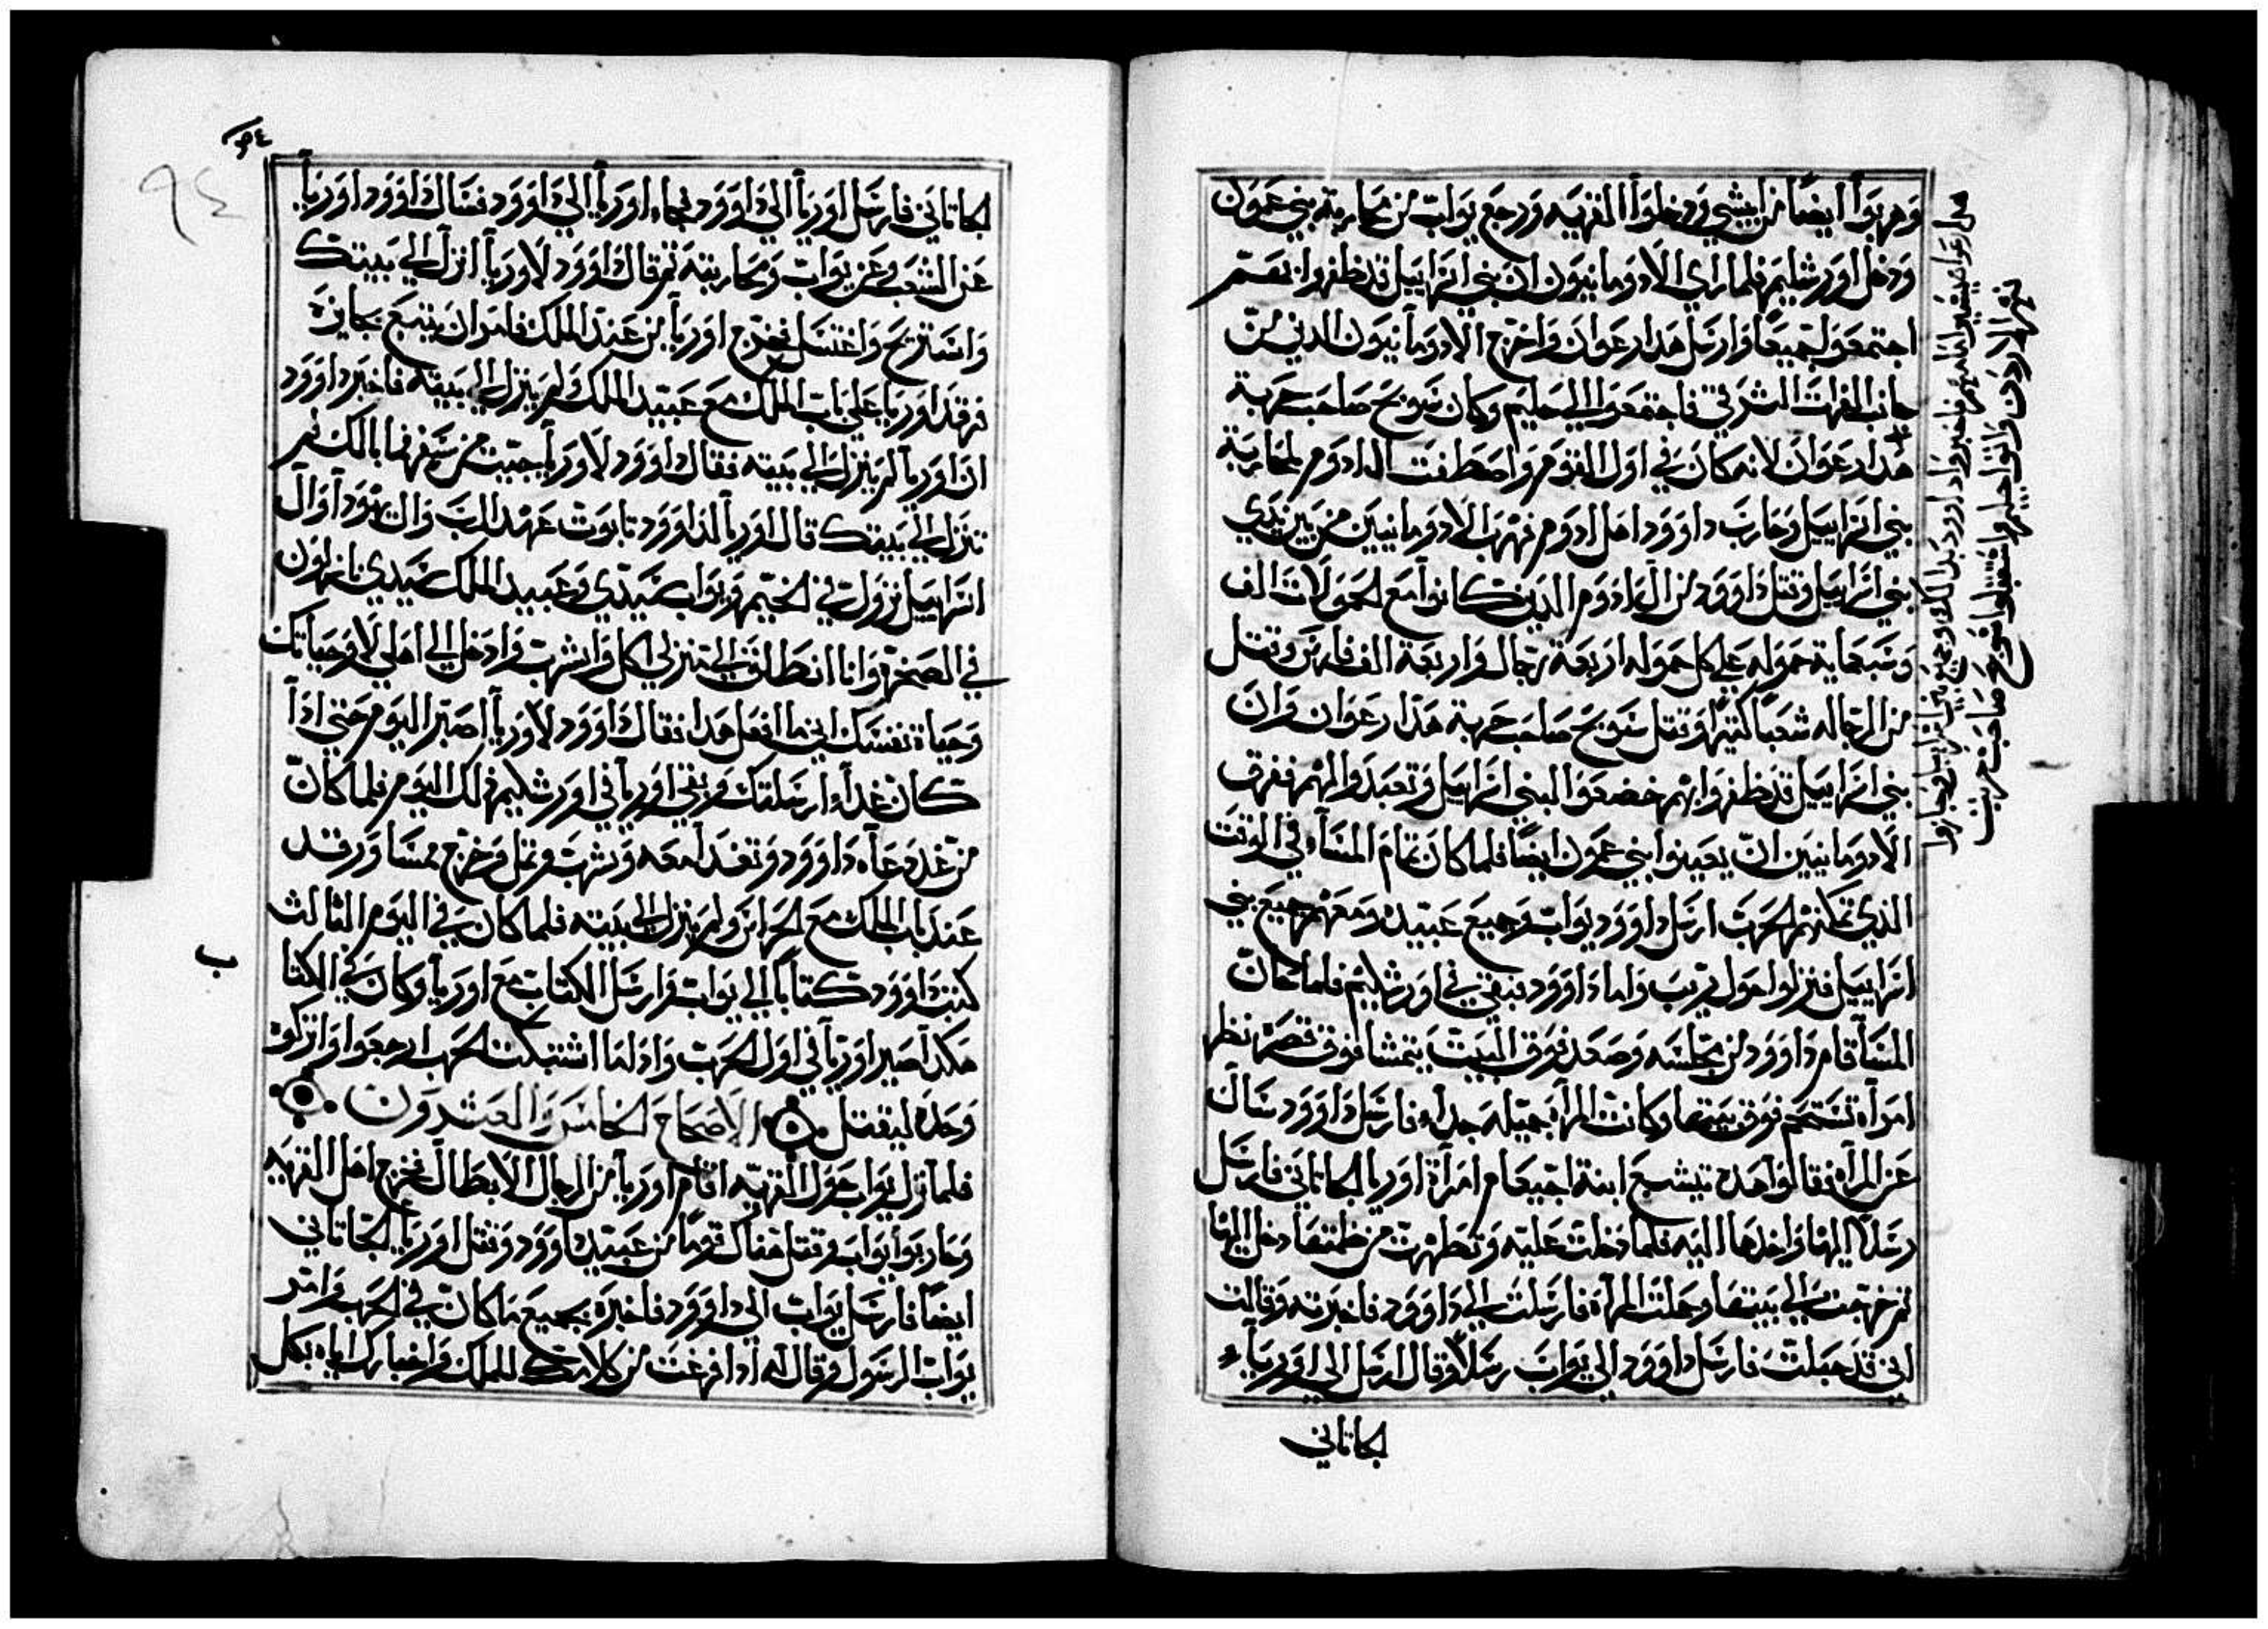 وهربوا ايضا من ابيشي ودخلوا القريه ورجع يواب من محاربة بني عمون
ودخل اورشليم فلما راي الادومانيون ان بني اسراييل قد ظفروا بهم
اجتمعوا جميعا وارسل هدارعوان واخرج الادومانيون الدين من
جانب الفرات الشرقي فاجتمعوا الي حليم وكان شوبح صاحب حربة
هدارعوان لانه كان في اول القوم واصطفت الادوم لمحاربة
بني اسراييل وحارب داوود اهل ادوم فهرب الادومانيين من بين يدي
بني اسراييل وقتل داوود من الادوم الدين كانوا مع الحمولات الف
وسبعماية حموله علي كل حموله اربعة رجال واربعة الف فارس وقتل
من الرجاله شعبا كثيرا وقتل شوبح صاحب حربة هدارعوان وان
بني اسراييل قد ظفروا بهم خضعوا لبني اسراييل وتعبدوا لهم ففرق
الادومانيين ان يعينوا بني عمون ايضا فلما كان تمام السنه في الوقت
الذي تمكنهم الحرب ارسل داوود يواب وجميع عبيده ومعهم جميع بني
اسراييل فنزلوا حول قريب واما داوود فبقي في اورشليم فلما كان
المسآ قام داوود من مجلسه وصعد فوق البيت يتمشا فوق قصره نظر
امرآه تستحم فوق بيتها وكانت المرآه جميله جدا فارسل داوود سآل
عن المرآه فقالوا هده بتشبع ابنة اجيعام امرآة اوريا الجاتاني فارسل
رسلا اليها واخدها اليه فلما دخلت عليه وتطهرت من طمثها دخل اليها
ثم خرجت الي بيتها وحبلت المرآه فارسلت الي داوود فاخبرته وقالت
اني قد حبلت فارسل داوود الي يواب رسلا وقال ارسل الي اوريا
الجاتاني
هدارعوان فاخبروا داوود بدلك وجميع بني اسراييل فجازوا
نهر الاردن واتوا حليم واستقبلوا شوبح صاحب حربة
٩٤
الجاتاني فارسل اوريا الي داوود فجاء اوريا الي داوود فسال داوود اوريا
عن الشعب وعن يواب ومحاربته ثم قال داوود لاوريا انزل الي بيتك
واستريح واغتسل فخرج اوريا من عند الملك فامر ان يتبع بجايزه
فرقد اوريا علي باب الملك مع عبيد الملك ولم ينزل الي بيته فاخبر داوود
ان اوريا لم ينزل الي بيته فقال داوود لاوريا جيت من سفر فما بالك لم
تنزل الي بيتك قال اوريا لداوود تابوت عهد الرب وال يهودا وال
اسراييل نزول في الخيم ويواب سيدي وعبيد الملك سيدي نازلون
في الصحرا وانا انطلق الي منزلي اكل واشرب وادخل الي اهلي لا وحياتك
وحياة نفسك اني ما افعل هدا فقال داوود لاوريا اصبر اليوم حتي ادا
كان غدا ارسلتك وبقي اوريا في اورشليم دلك اليوم فلما كان
من غد دعاه داوود وتغدا معه وشرب وثمل وخرج مسا ورقد
عند باب الملك مع الحراس ولم ينزل الي بيته فلما كان في اليوم الثالث
كتب داوود كتابا الي يواب وارسل الكتاب مع اوريا وكان في الكتا
ب
هكدا صير اوريا في اول الحرب وادا ما اشتبكت الحرب ارجعوا واتركوه
وحده ليقتل الاصحاح الخامس والعشرون
فلما نزل يواب حول القريه اقام اوريا من الرجال الابطال فخرج اهل القريه
وحاربوا يواب وقتل هناك قوما من عبيد داوود وقتل اوريا الجاتاني
ايضا فارسل يواب الي داوود فاخبره بجميع ما كان في الحرب وامر
يواب الرسول وقال له ادا فرغت من كلامك للملك واخبارك اياه بكل